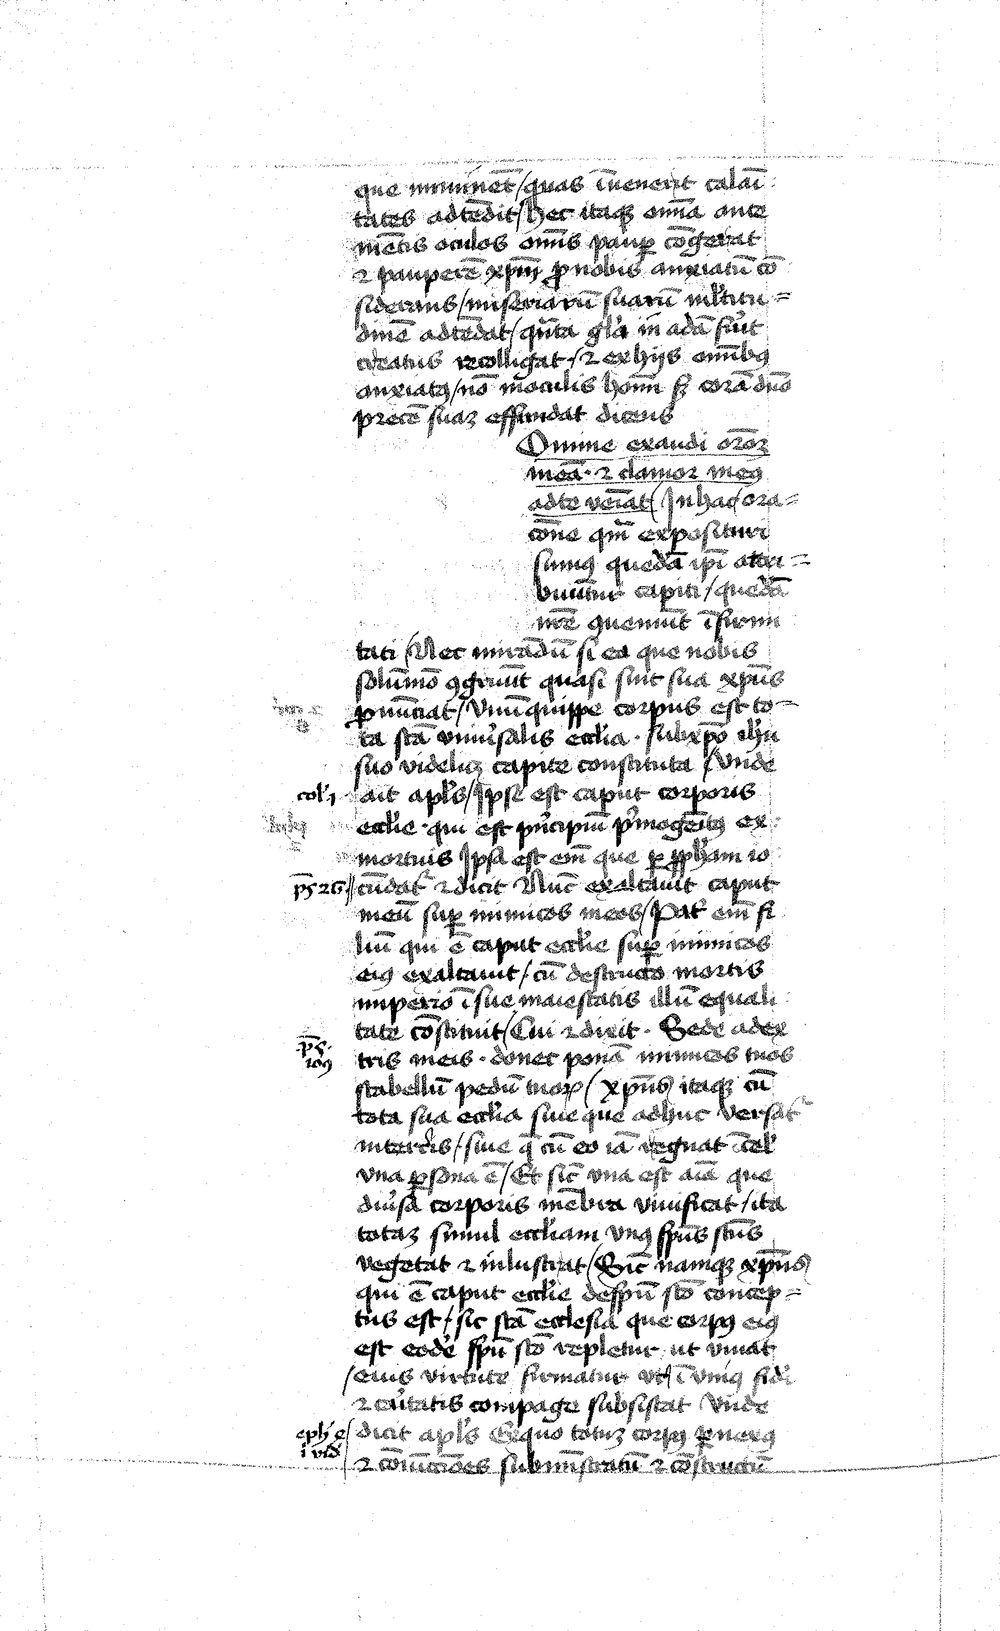 que im̄minet̄ / quas īnenerit calaī
tates adtēdit / hec itaqꝫ om̄ia ante
mētis oculos om̄is paup̲ cōgerat
⁊ pauperē xp̄m ꝓ nobis anxiatū cō
siderans / miseriarū suarū ml̓titu=
dinē adtēdat / qn̄ta gl̓a in adā fuit
creatus recolligat / ⁊ ex hijs om̄ibꝯ
anxiatꝯ / nō in oculis hom̄ sꝫ corā dn̄o
precē suaꝫ effundat dicens
Domine exaudi orōꝫ
meā · ⁊ clamor meꝯ
ad te veīat / In hac ora=
cōne qm̄ exposituri
sumꝯ quedā ip̄i attri=
buūtur capiti / quedā
nr̄e ꝯueniūt īfirmi
tati / Nec mirādū si ea que nobis
solūmō ꝯgruūt quasi sint sua xp̄us
ꝓnūciat / Vnū quippe corpus est to=
ta sc̄a vniu̓salis ecc̓lia · sub xp̄o ih̄u
suo videlicꝫ capite constituta / Vnde
col̓ .1. ait apl̓s / Ipse est caput corporis
ecc̓lie · qui est pn̓cipiū p̓mogēitꝯ ex
mortuis Ipsa est em̄ que ꝑ ꝓph̓am io
p̄s 26 cūdat̓ ⁊ dicit Nūc exaltauit caput
meū suꝑ inimicos meos / Pat̓ em̄ fi
liū qui ē caput ecc̓lie suꝑ inimicos
eiꝯ exaltauit / cū destructo mortis
imperio ī sue maiestatis illū equali
tate cōstituit / Cui ⁊ dixit · Sede a dex
p̄s · 109 tris meis · donec ponā inimicos tuos
scabellū pedū tuoꝝ / xp̄us itaqꝫ cū
tota sua ecc̓lia siue que adhuc versat̓
in terris / siue q̄ cū eo iā regnat ī cel̓
vna ꝑsona ē / Et sic̄ vna est aīa que
diu̓sa corporis mēbra viuificat / ita
totaꝫ simul ecc̓liam vnꝯ sp̄us sc̄us
vegetat ⁊ inlustrat / Sic̄ namqꝫ xp̄us
qui ē caput ecc̓lie de sp̄u sc̄o concep=
tus est / sic sc̄a ecclesia que corpꝯ eiꝯ
est eodē sp̄u sc̄o repletur ut viuat
/ eius virtute firmatur ut ī vniꝯ fidei
⁊ caritatis compage subsistat Vnde
eph̓ dicit apl̓s Ex quo totuꝫ corpꝯ ꝑ nexꝯ
⁊ cōiūctiōes submīstratū ⁊ cōstructū